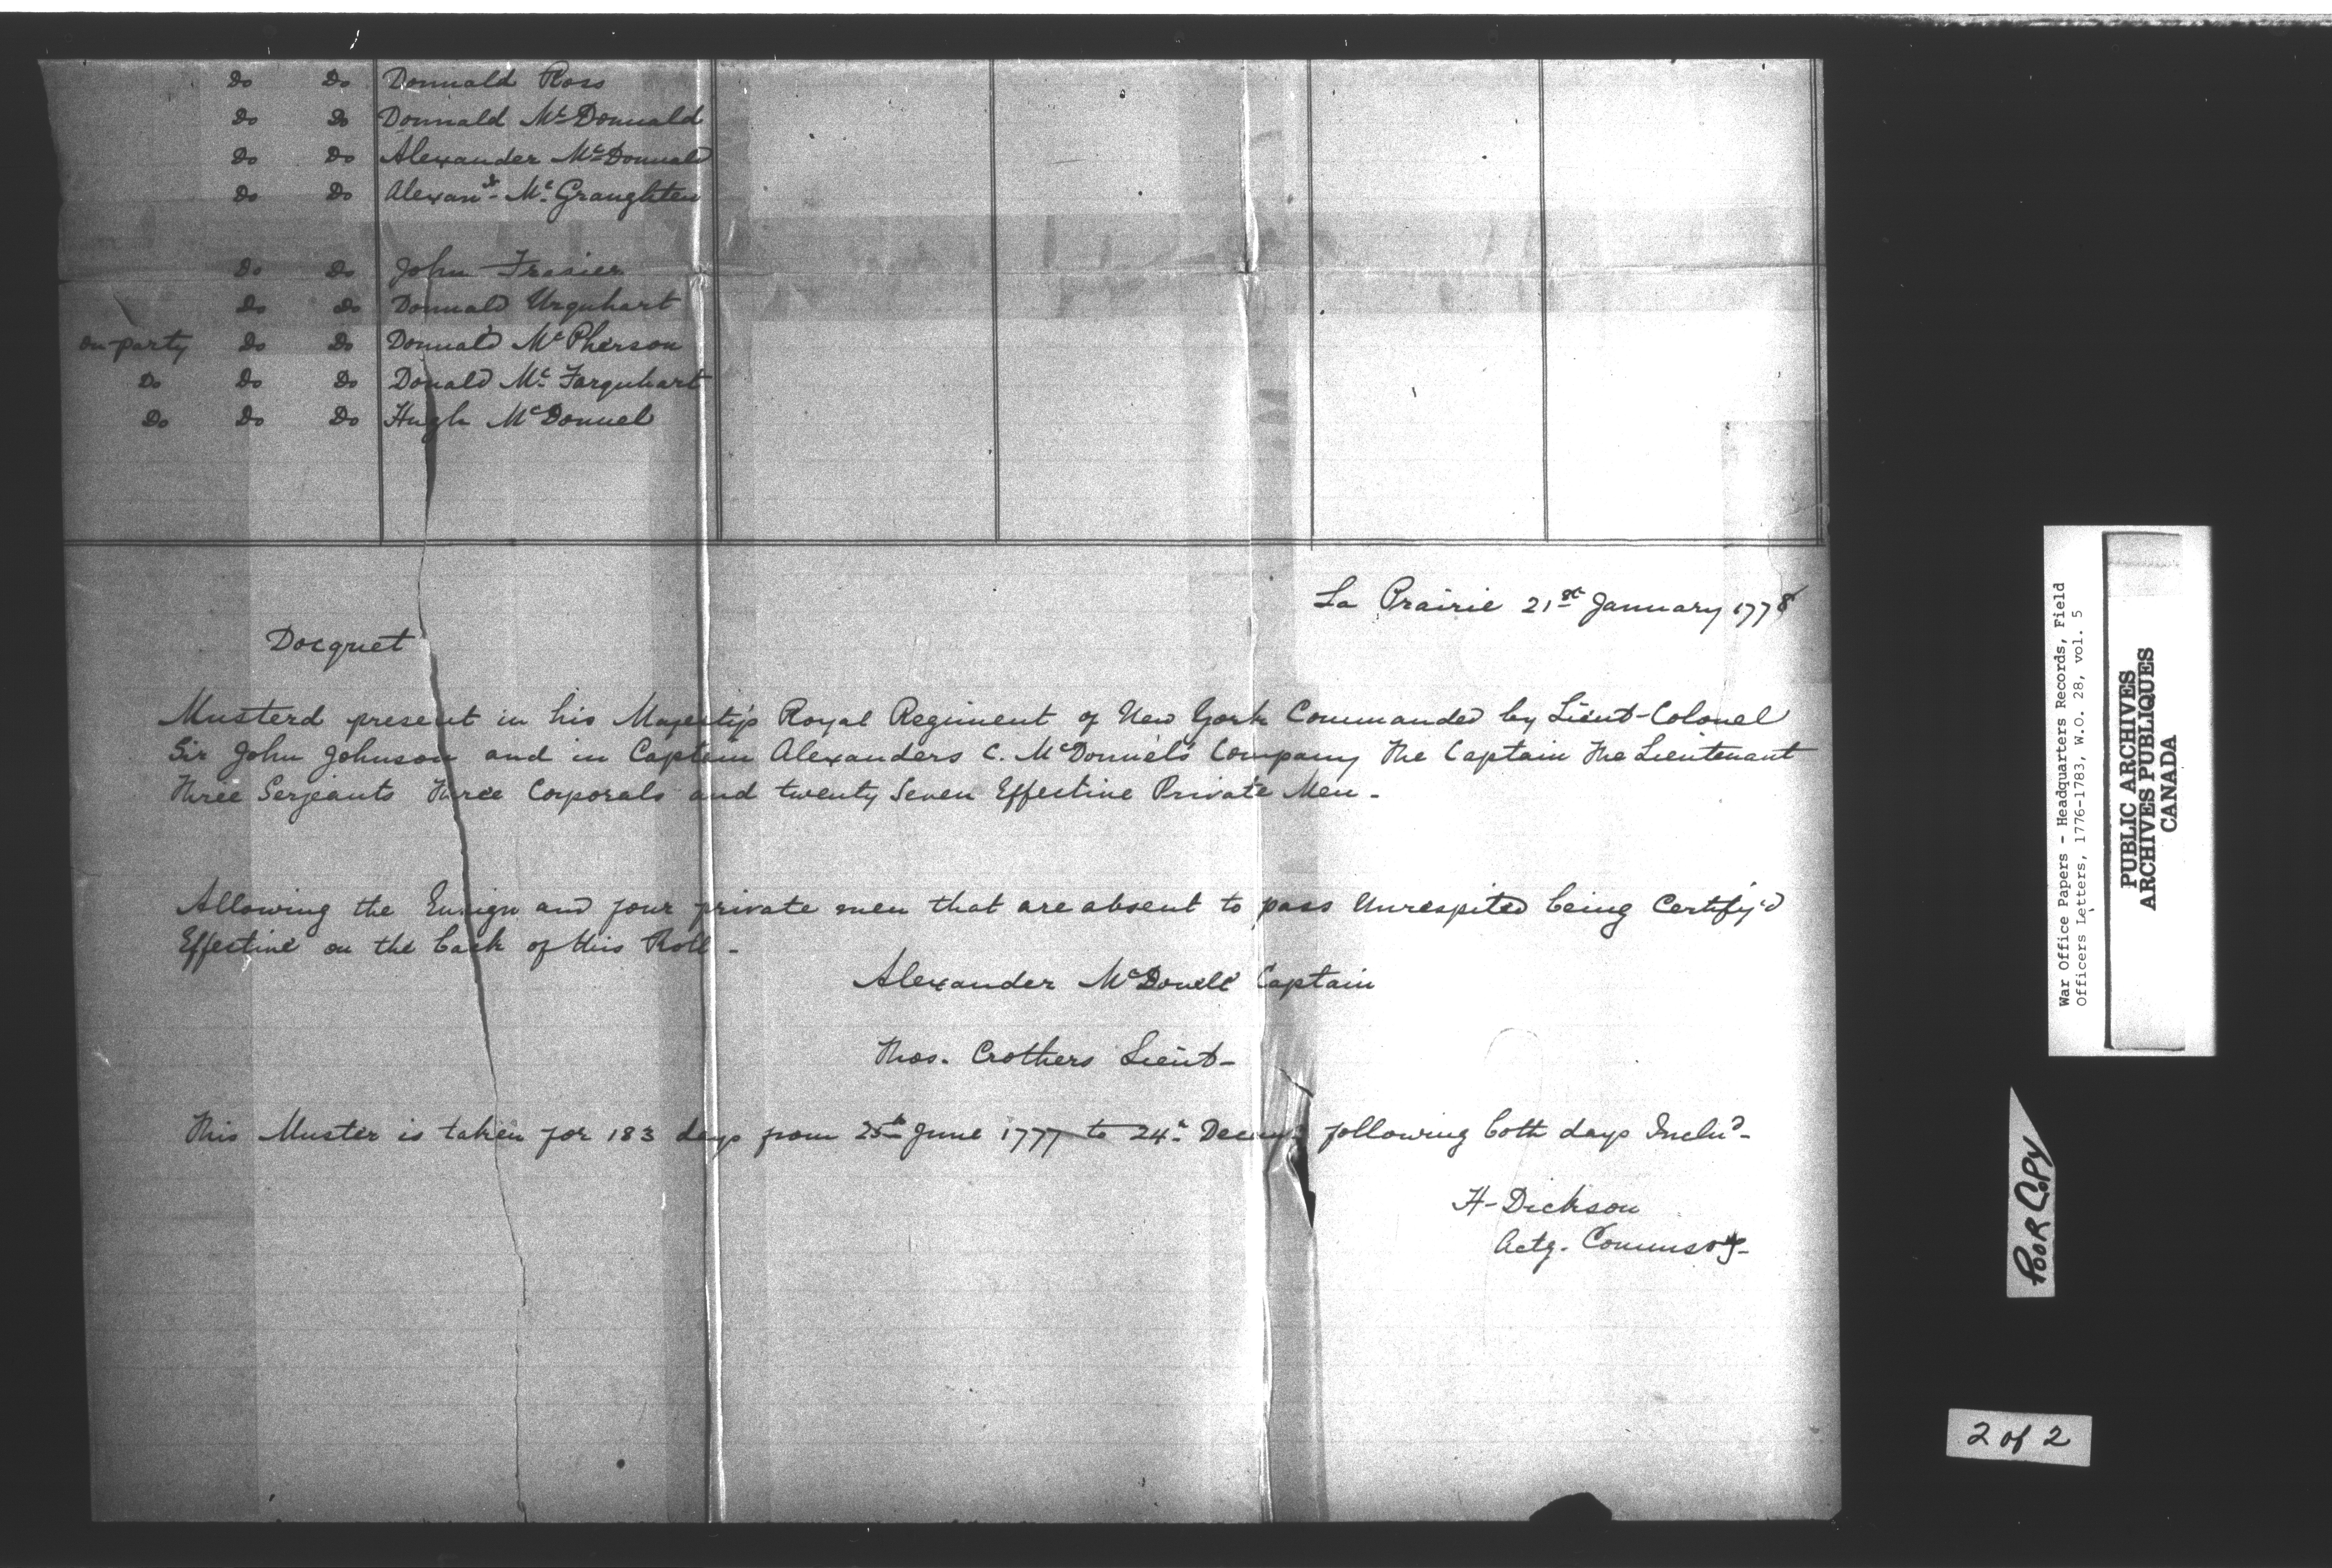 Do Do Donnald Ross
Do Do Donnald McDonnald
Do Do Alexander McDonnald
Do Do Alexanr. Mc. Graughten
Do Do John Frasier
Do Do Donnald Urquhart
on party Do Do Donnald McPherson
Do Do Do Donald Mc. Farquhart
Do Do Do Hugh McDonnel
La Prairie 21st January 1778
Docquet
Musterd present in his Majestys Royal Regiment of New York Commanded by Lieut-Colonel
Sir John Johnson and in Captain Alexanders C. McDonnels Company The Captain The Lieutenant
Three Serjeants Three Corporals and twenty Seven Effective Private Men -
Allowing the Ensign and four private men that are absent to pass Unrespited being Certify'd
Effective on the back of this Roll -
Alexander McDonell Captain
Thos. Crothers Lieut-
This Muster is taken for 183 days from 25th June 1777 to 24th following both days Includ-
H-Dickson
Actg. Commsry-
War Office Papers - Headquarters Records, Field
Officers Letters, 1776-1783, W.O. 28, vol. 5
PUBLIC ARCHIVES
ARCHIVES PUBLIQUES
CANADA
POOR COPY
2 of 2